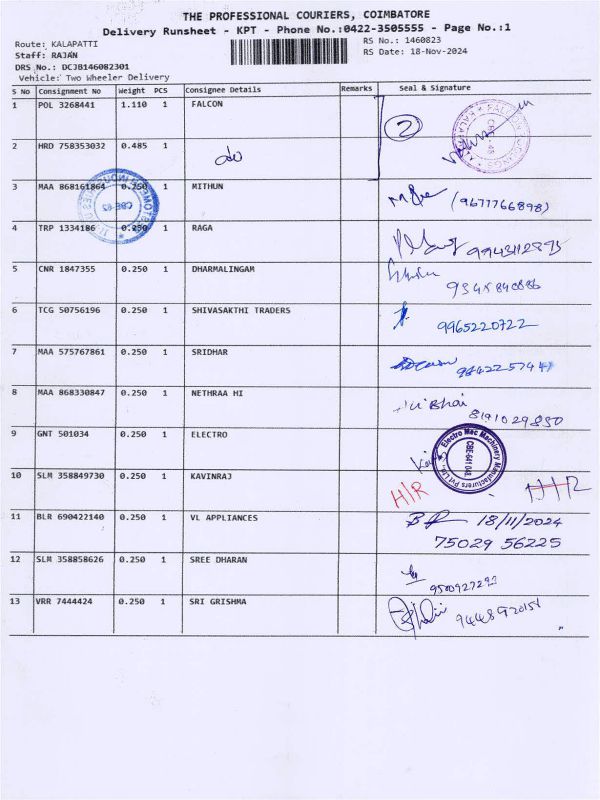 THE PROFESSIONAL COURIERS, COIMBATORE
Delivery Runsheet - KPT - Phone No.:0422-3505555 - Page No.:1
Route: KALAPATTI RS No.: 1460823
Staff: RAJAN RS Date: 18-Nov-2024
DRS No.: DCJB146082301
Vehicle: Two Wheeler Delivery
S No Consignment No Weight PCS Consignee Details Remarks Seal & Signature
1 POL 3268441 1.110 1 FALCON
2
2 HRD 758353032 0.485 1
do
3 MAA 868161864 0.250 1 MITHUN
(9677766898)
4 TRP 1334186 0.250 1 RAGA
5 CNR 1847355 0.250 1 DHARMALINGAM
6 TCG 50756196 0.250 1 SHIVASAKTHI TRADERS
9965220722
7 MAA 575767861 0.250 1 SRIDHAR
8 MAA 868330847 0.250 1 NETHRAA HI
Bhai
8191029850
9 GNT 501034 0.250 1 ELECTRO
Electro Mec Machinery Manufacturers Pvt Ltd.
CBE-641 048.
10 SLM 358849730 0.250 1 KAVINRAJ
H/R
11 BLR 690422140 0.250 1 VL APPLIANCES
18/11/2024
75029 56225
12 SLM 358858626 0.250 1 SREE DHARAN
13 VRR 7444424 0.250 1 SRI GRISHMA